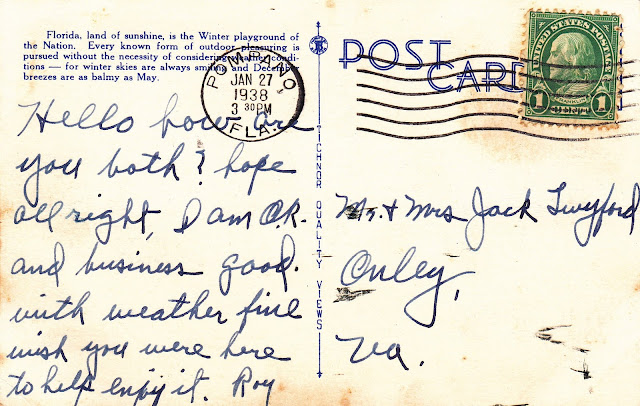 Florida, land of sunshine, is the Winter playground of
the Nation. Every known form of outdoor pleasuring is
pursued without the necessity of considering weather condi-
tions — for winter skies are always smiling and December
breezes are as balmy as May.
POST
CARD
UNITED STATES POSTAGE
FRANKLIN
1 1
POMPANO
JAN 27
1938
3 30 PM
FLA.
Hello how are
you both? hope
all right, I am O.K.
and business good.
with weather fine
wish you were here
to help enjoy it. Roy
TICHNOR QUALITY VIEWS
Mr. + Mrs Jack Twyford
Onley,
Va.